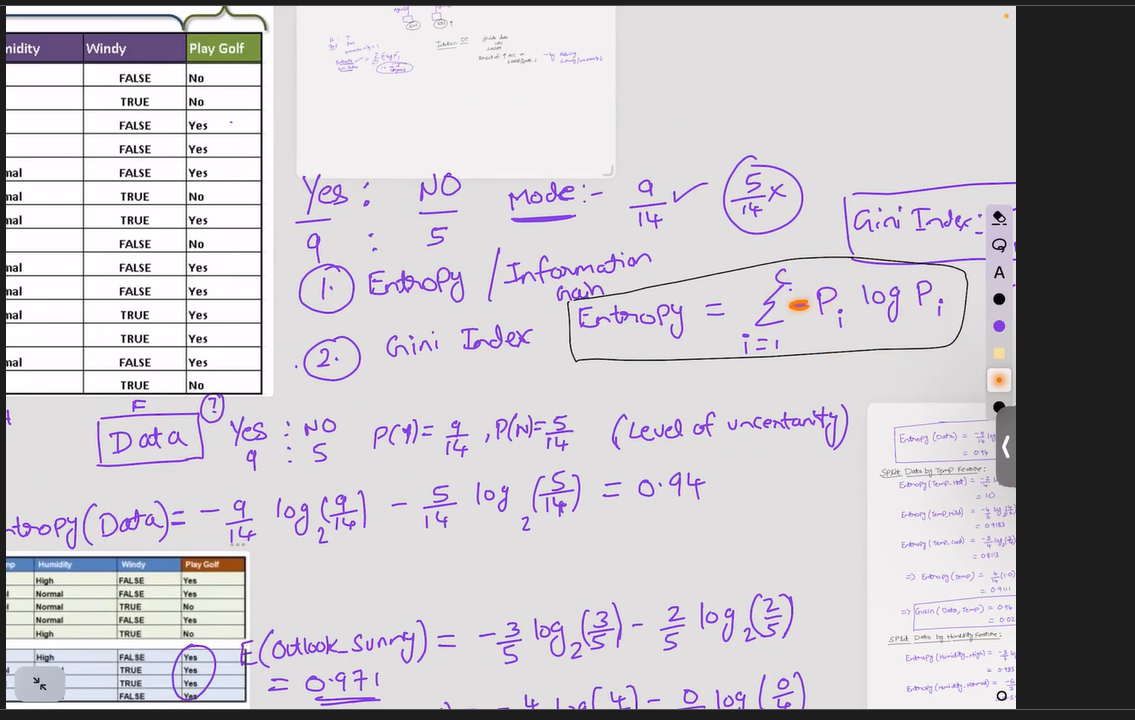 midity Windy Play Golf
FALSE No
TRUE No
FALSE Yes
FALSE Yes
mal FALSE Yes
mal TRUE No
mal TRUE Yes
FALSE No
mal FALSE Yes
mal FALSE Yes
mal TRUE Yes
TRUE Yes
mal FALSE Yes
TRUE No
Yes : NO Mode:- 9/14 ✓ 5/14 x
9 : 5
Gini Index:
1. Entropy / Information Gain
Entropy = Σ i=1 c - Pi log Pi
2. Gini Index
F ?
Data Yes : NO P(Y)= 9/14 , P(N)= 5/14 (Level of uncertanity)
9 : 5
ntropy(Data) = - 9/14 log2(9/14) - 5/14 log2(5/14) = 0.94
mp Humidity Windy Play Golf
High FALSE Yes
Normal FALSE Yes
Normal TRUE No
Normal FALSE Yes
High TRUE No
High FALSE Yes
TRUE Yes
TRUE Yes
FALSE Yes
E(Outlook_Sunny) = - 3/5 log2(3/5) - 2/5 log2(2/5)
= 0.971
- 4 log(4) - 0 log(0/4)
Entropy (Data) = -9/14 log
= 0.94
Split Data by Temp Feature:
Entropy (Temp_Hot) =
Entropy (Temp_Mild) =
= 0.9183
Entropy (Temp_Cool) =
= 0.8113
=> Entropy (Temp) = 4/14 (1.0)
= 0.9111
=> Gain (Data, Temp) = 0.94
= 0.02
Split Data by Humidity Feature:
Entropy (Humidity_High) =
= 0.985
Entropy (Humidity_Normal) =
A